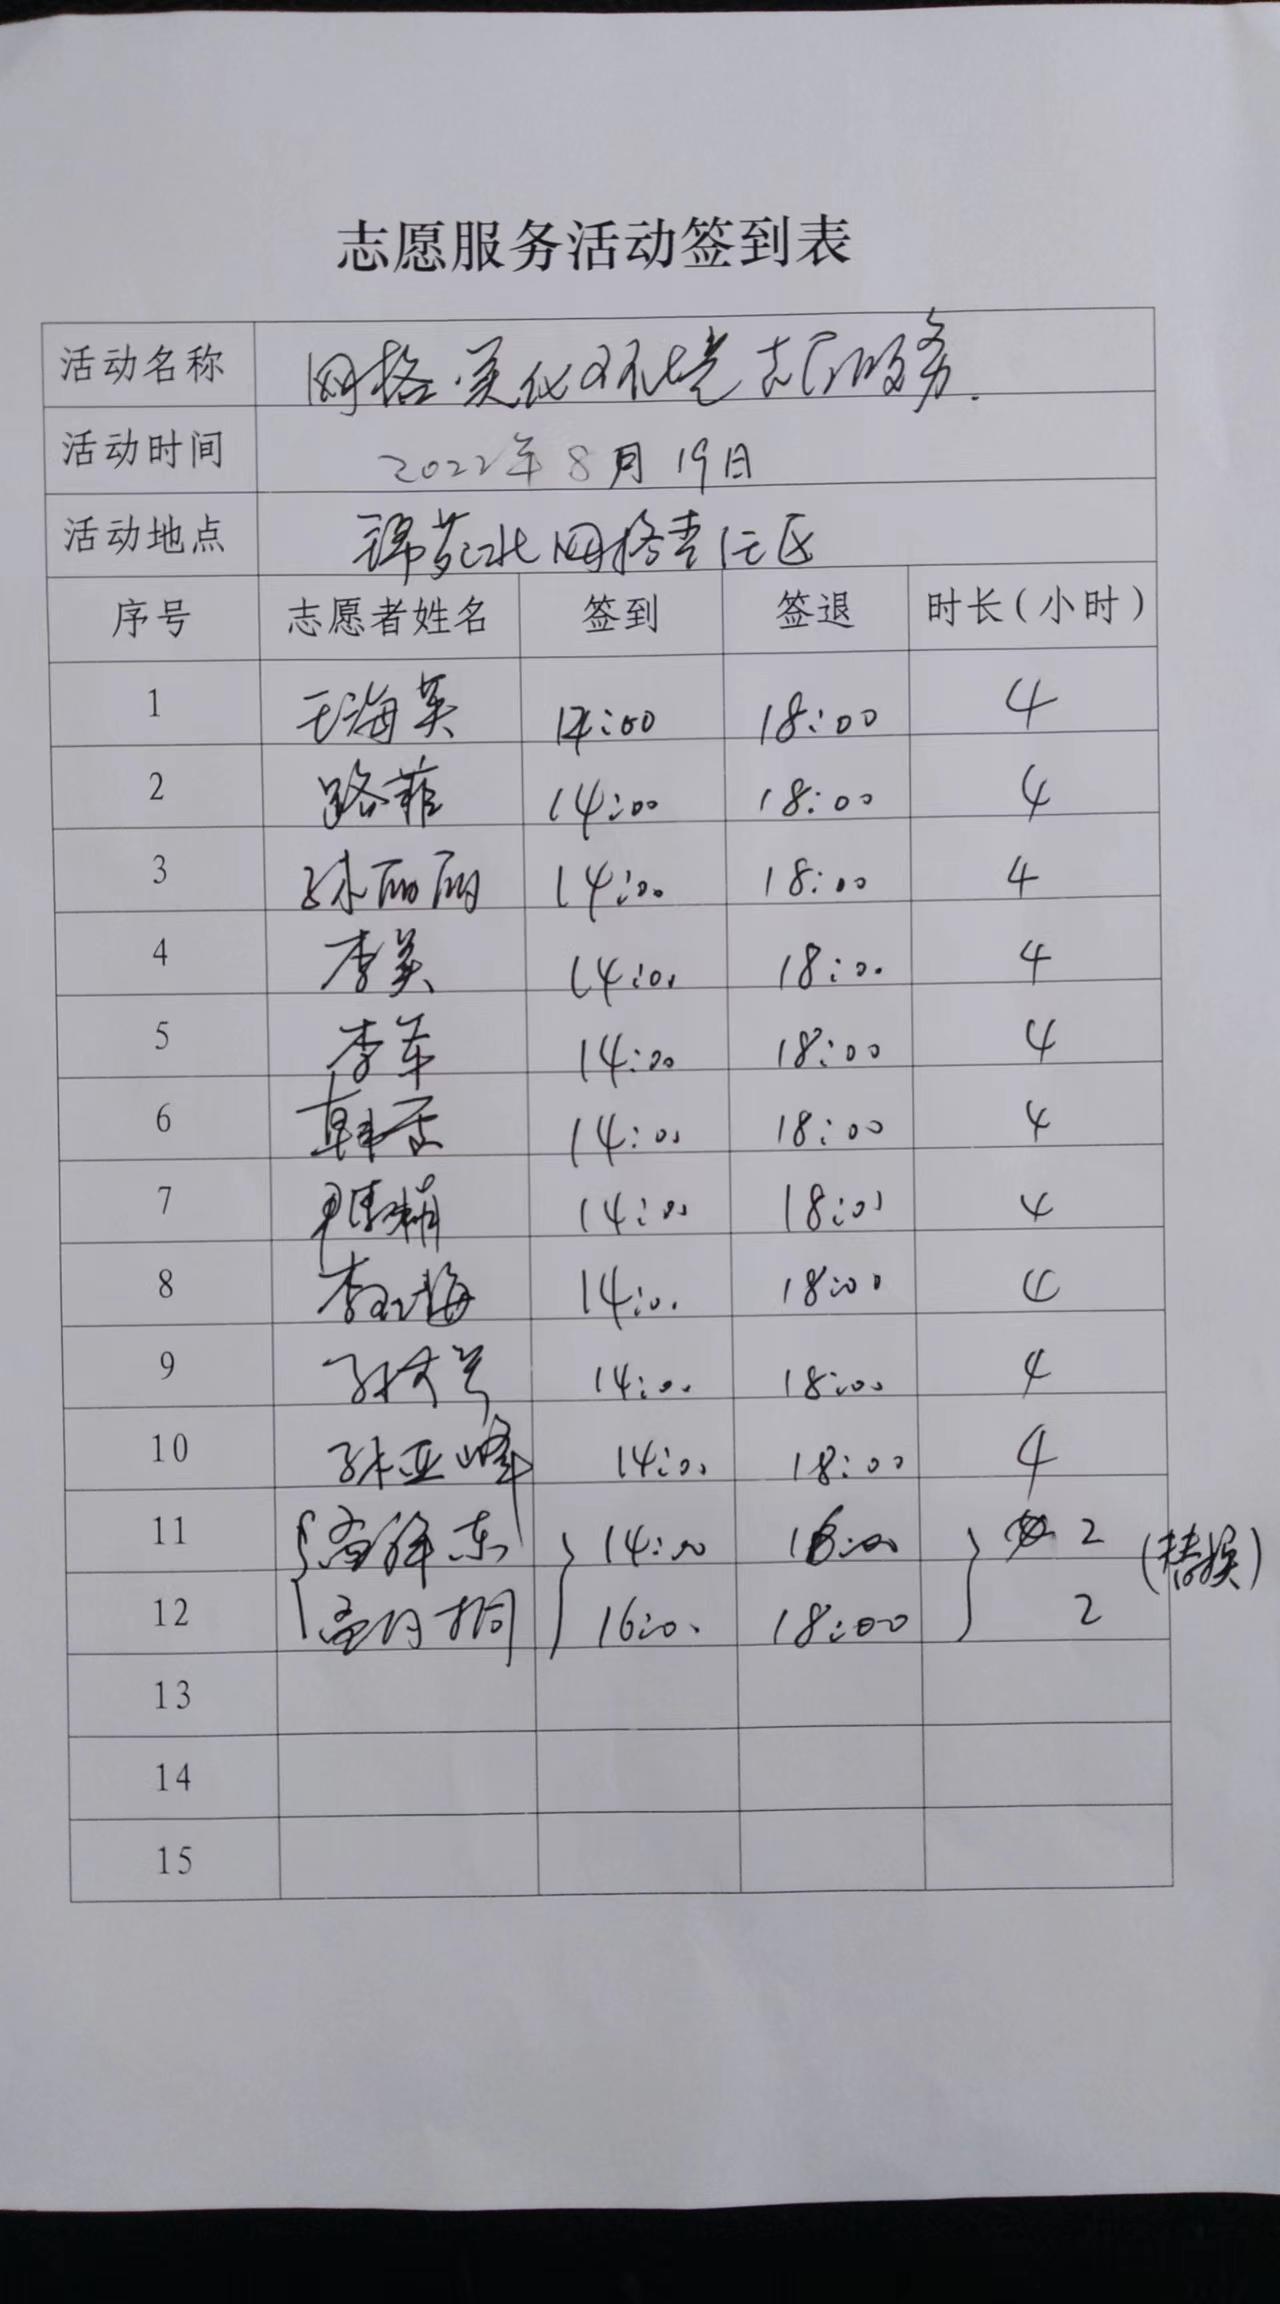 志愿服务活动签到表
活动名称 网格美化环境志愿服务.
活动时间 2022年8月19日
活动地点 锦苑北网格责任区
序号 志愿者姓名 签到 签退 时长(小时)
1 王海英 14:00 18:00 4
2 路菲 14:00 18:00 4
3 孙丽丽 14:00 18:00 4
4 李英 14:00 18:00 4
5 李军 14:00 18:00 4
6 韩 14:00 18:00 4
7 14:00 18:00 4
8 李 海 14:00 18:00 4
9 孙 14:00 18:00 4
10 孙亚峰 14:00 18:00 4
11 东 14:00 16:00 2 (替换)
12 桐 16:00 18:00 2
13
14
15